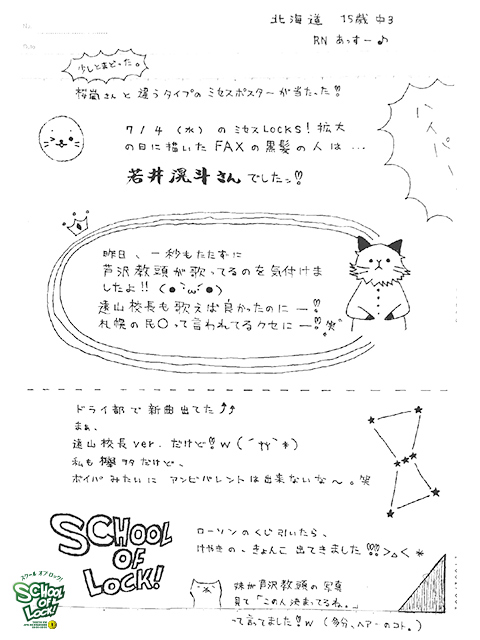 北海道 15歳 中3
RN あっすー♪
少しとまどった。
桜蘭さんと違うタイプのミセスポスターが当たった!!
ハイパー
7/4(水)のミセスLOCKS!拡大
の日に描いたFAXの黒髪の人は…
若井滉斗さんでしたッ!!
昨日、一秒もたたずに
芦沢教頭が歌ってるのを気付けま
したよ!!(●`ω´●)
遠山校長も歌えば良かったのにー!!
札幌の民〇って言われてるクセにー!!笑
ドライ都で新曲出てた↑↑
まぁ、
遠山校長ver.だけど!!w(´艸`*)
私も欅ヲタだけど、
ボイパみたいにアンビバレントは出来ないな〜。笑
SCHOOL
OF
LOCK!
ローソンのくじ引いたら、
けやきの、きょんこ出てきました!!!>△<*
妹が芦沢教頭の写真
見て「この人決まってるね。」
って言ってました!!w(多分、ヘアーのコト。)
スクール オブ ロック!
SCHOOL
OF
LOCK!